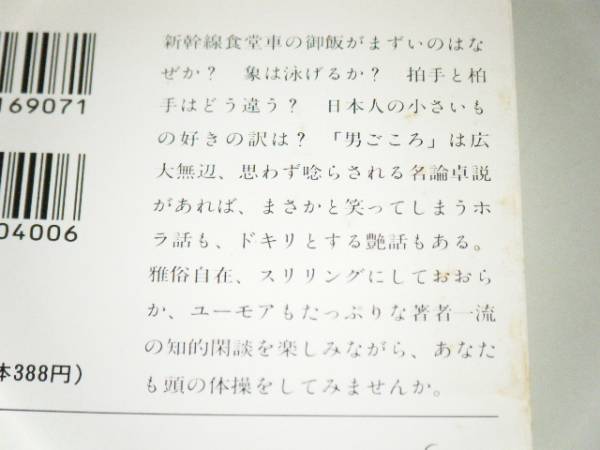 新幹線食堂車の御飯がまずいのはな
ぜか？　象は泳げるか？　拍手と柏
手はどう違う？　日本人の小さいも
の好きの訳は？　「男ごころ」は広
大無辺、思わず唸らされる名論卓説
があれば、まさかと笑ってしまうホ
ラ話も、ドキリとする艶話もある。
雅俗自在、スリリングにしておおら
か、ユーモアもたっぷりな著者一流
の知的閑談を楽しみながら、あなた
も頭の体操をしてみませんか。
169071
04006
本388円）